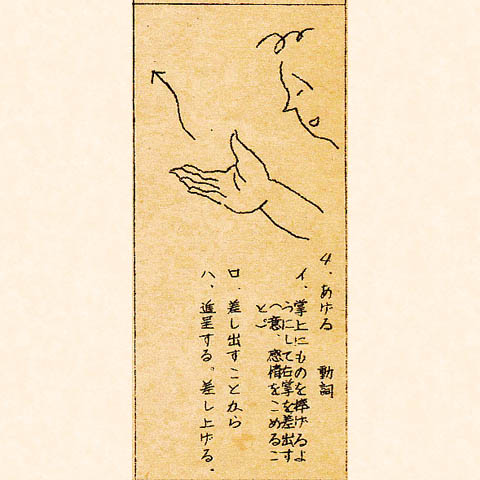 4.あげる　動詞
イ、掌上にものを捧げるよ
うにして右掌を差出す
(意、感情をこめるこ
と)
ロ.差し出すことから
ハ、進呈する。差し上げる。